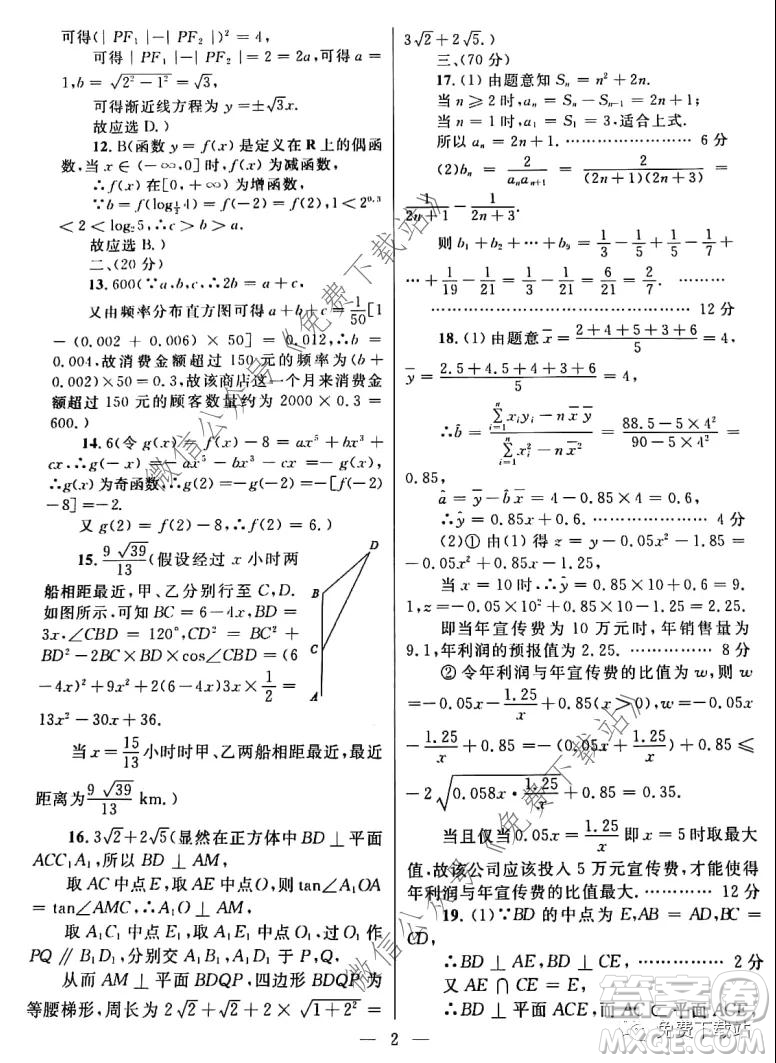 可得(| PF₁ |－| PF₂ |)² = 4,
可得 | PF₁ |－| PF₂ | = 2 = 2a, 可得 a =
1, b = √(2² − 1²) = √3,
可得渐近线方程为 y = ±√3x.
故应选 D.)
12. B(函数 y = f(x) 是定义在 R 上的偶函
数, 当 x ∈ (－∞,0] 时, f(x) 为减函数,
∴f(x) 在[0, ＋∞) 为增函数,
∵b = f(log_{1/2} 4) = f(－2) = f(2), 1 < 2^{0.3}
< 2 < log₂5, ∴c > b > a.
故应选 B.)
二、(20 分)
13. 600(∵a, b, c, ∴2b = a + c,
又由频率分布直方图可得 a + b + c = 1/50 [1
－ (0.002 + 0.006) × 50] = 0.012, ∴b =
0.004, 故消费金额超过 150 元的频率为(b +
0.002)×50 = 0.3, 故该商店这一个月来消费金
额超过 150 元的顾客数量约为 2000 × 0.3 =
600.)
14. 6(令 g(x) = f(x) － 8 = ax⁵ + bx³ +
cx, ∴g(－x) = － ax⁵ － bx³ － cx = － g(x).
∴g(x) 为奇函数, ∴g(－2) =－g(2) =－[f(2)
－8] =－2.
又 g(2) = f(2)－8, ∴f(2) = 6.)
15. 9√39/13 (假设经过 x 小时两
船相距最近, 甲、乙分别行至 C, D.
如图所示, 可知 BC = 6－4x, BD =
3x. ∠CBD = 120°, CD² = BC² +
BD² －2BC × BD × cos∠CBD = (6
－4x)² + 9x² + (6－4x)3x × 1/2 =
13x² － 30x + 36.
A
B
C
D
当 x = 15/13 小时时甲、乙两船相距最近, 最近
距离为 9√39/13 km.)
16. 3√2 + 2√5 (显然在正方体中 BD ⊥ 平面
ACC₁A₁, 所以 BD ⊥ AM,
取 AC 中点 E, 取 AE 中点 O, 则 tan∠A₁OA
= tan∠AMC, ∴A₁O ⊥ AM,
取 A₁C₁ 中点 E₁, 取 A₁E₁ 中点 O₁, 过 O₁ 作
PQ ∥ B₁D₁, 分别交 A₁B₁, A₁D₁ 于 P, Q,
从而 AM ⊥ 平面 BDQP, 四边形 BDQP 为
等腰梯形, 周长为 2√2 + √2 + 2 × √(1 + 2²) =
3√2 + 2√5.)
三、(70 分)
17. (1) 由题意知 Sₙ = n² + 2n.
当 n ≥ 2 时, aₙ = Sₙ － Sₙ₋₁ = 2n + 1.
当 n = 1 时, a₁ = S₁ = 3, 适合上式.
所以 aₙ = 2n + 1. ……………… 6 分
(2)bₙ = 2/(aₙaₙ₊₁) = 2/((2n + 1)(2n + 3)) =
1/(2n + 1) － 1/(2n + 3).
则 b₁ + b₂ + … + b₉ = 1/3 － 1/5 + 1/5 － 1/7 +
… + 1/19 － 1/21 = 1/3 － 1/21 = 6/21 = 2/7. ………
……………… 12 分
18. (1) 由题意 x̄ = (2 + 4 + 5 + 4 + 5)/5 = 4,
ȳ = (2.5 + 4.5 + 4 + 3 + 6)/5 = 4,
∴b̂ = (∑ᵢ₌₁ⁿ xᵢyᵢ － n x̄ ȳ)/(∑ᵢ₌₁ⁿ xᵢ² － n x̄²) = (88.5－5×4²)/(90－5×4²) =
0.85,
â = ȳ－b̂ x̄ = 4－0.85×4 = 0.6,
∴ŷ = 0.85x + 0.6. ……………… 4 分
(2)① 由(1) 得 z = － 0.05x² － 1.85 =
－0.05x² + 0.85x－1.25,
当 x = 10 时, ∴ŷ = 0.85 × 10 + 0.6 =
9.1, z = －0.05×10² + 0.85×10－1.25 = 2.25.
即当年宣传费为 10 万元时, 年销售量为
9.1, 年利润的预报值为 2.25. ………… 8 分
② 令年利润与年宣传费的比值为 w, 则 w
= －0.05x－ 1.25/x + 0.85(x > 0), w = －0.05x
－ 1.25/x + 0.85 = －(0.05x + 1.25/x) + 0.85 ≤
－2√(0.058x · 1.25/x) + 0.85 = 0.35.
当且仅当 0.05x = 1.25/x 即 x = 5 时取最大
值, 故该公司应该投入 5 万元宣传费, 才能使得
年利润与年宣传费的比值最大. ………… 12 分
19. (1) ∵BD 的中点为 E, AB = AD, BC =
CD,
∴BD ⊥ AE, BD ⊥ CE, ………… 2 分
又 AE ∩ CE = E,
∴BD ⊥ 平面 AEC, AC ⊂ 平面 AEC,
— 2 —
微信公众号《免费下载站》
微信公众号《免费下载站》
答案圈
MXQE.COM
免费下载站